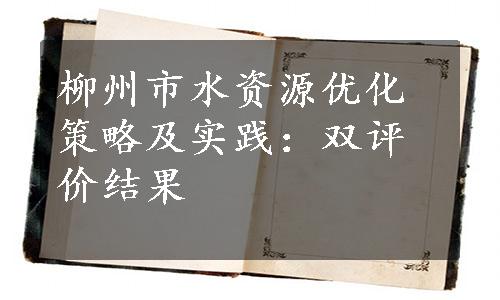 柳州市水资源优化
策略及实践：双评
价结果